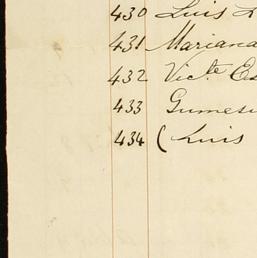 430 Luis
431 Mariana
432 Victe
433
434 ( Luis